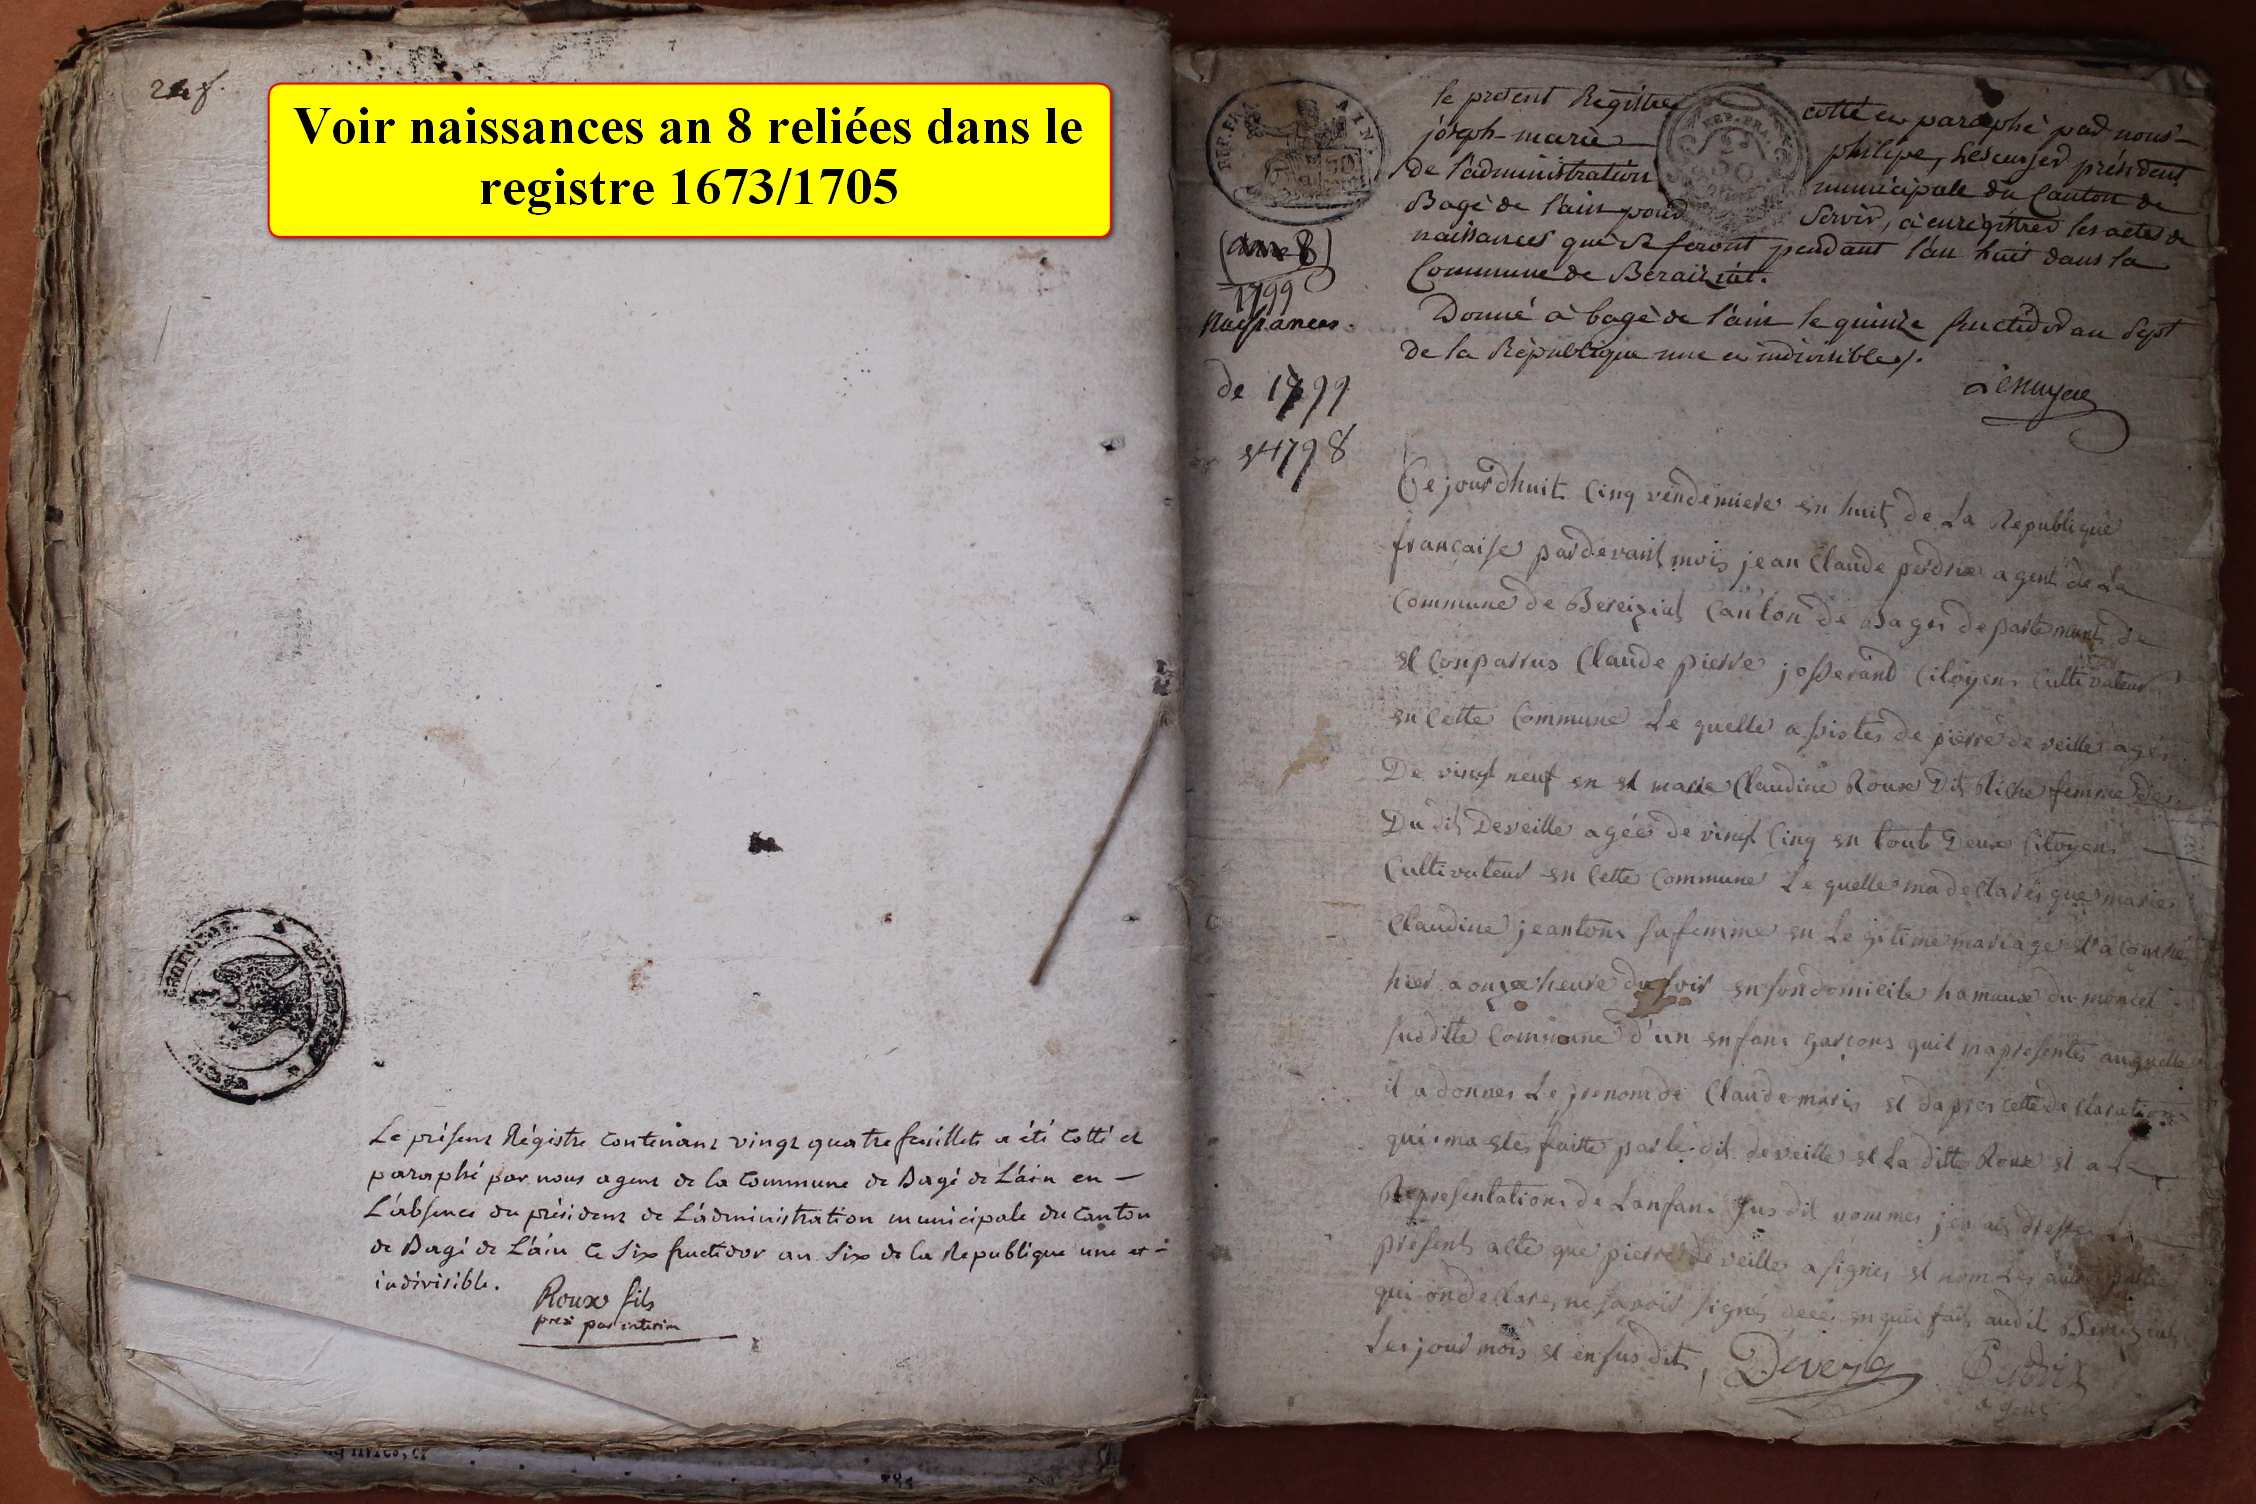 24 f.
Voir naissances an 8 reliées dans le
registre 1673/1705
Le présent Régistre contenant vingt quatre feuillets a été cotté et
paraphé par nous agent de la commune de Bagé de L'ain en
L'absence du président de L'administration municipale du canton
de Bagé de L'ain ce six fructidor an six de la Republique une et
indivisible.
Roux fils
presi par interim
DEP. DE L'AIN
REP. FRA.
le present Registre cotté et paraphé par nous
joseph-marie philipe, président
de l'administration municipale du Canton de
Bagé de l'ain pour servir, à enregistrer les actes de
naissances qui se feront pendant l'an huit dans la
Commune de Béraiziat.
Donné à bagé de l'ain le quinze fructidor an sept
de la République une et indivisible.
(anne 8)
1799
Naissances.
de 1799
1798
Ce jourdhuit Cinq vendemiere en huit de La Republique
française pardevant mois jean Claude perdrix agent de La
Commune de Bereiziat Canton de Bages departement de
et Conparrus Claude pierre josserand Citoyen Cultivateur
en Cette Commune Le quelle assistes de pierre deveille agés
De vingt neuf en et marie Claudine Roux Dit Riche femme
Du dit Deveille agée de vingt Cinq en tout Deux Citoyens
Cultivateur en Cette Commune Le quelle ma declarés que marie
Claudine jeanton sa femme en Legitime mariage et acouché
hier a onze heure du soir en son domicile hamaux du moncel
sudditte Commune d'un enfant garcons quil ma presentés auquelle
il a donner Le prenom de Claude marie et dapres cette declaration
qui ma etes faitte par le dit deveille et La ditte Roux et a La
Representation de Lanfan susdit nommes jen ais dresser Le
présent acte que pierre deveille a signer et nom Les autre
qui on declare ne savoir signés deces enqui fait audit Bereiziat
Les jour mois et en susdit,
Perdrix
agent